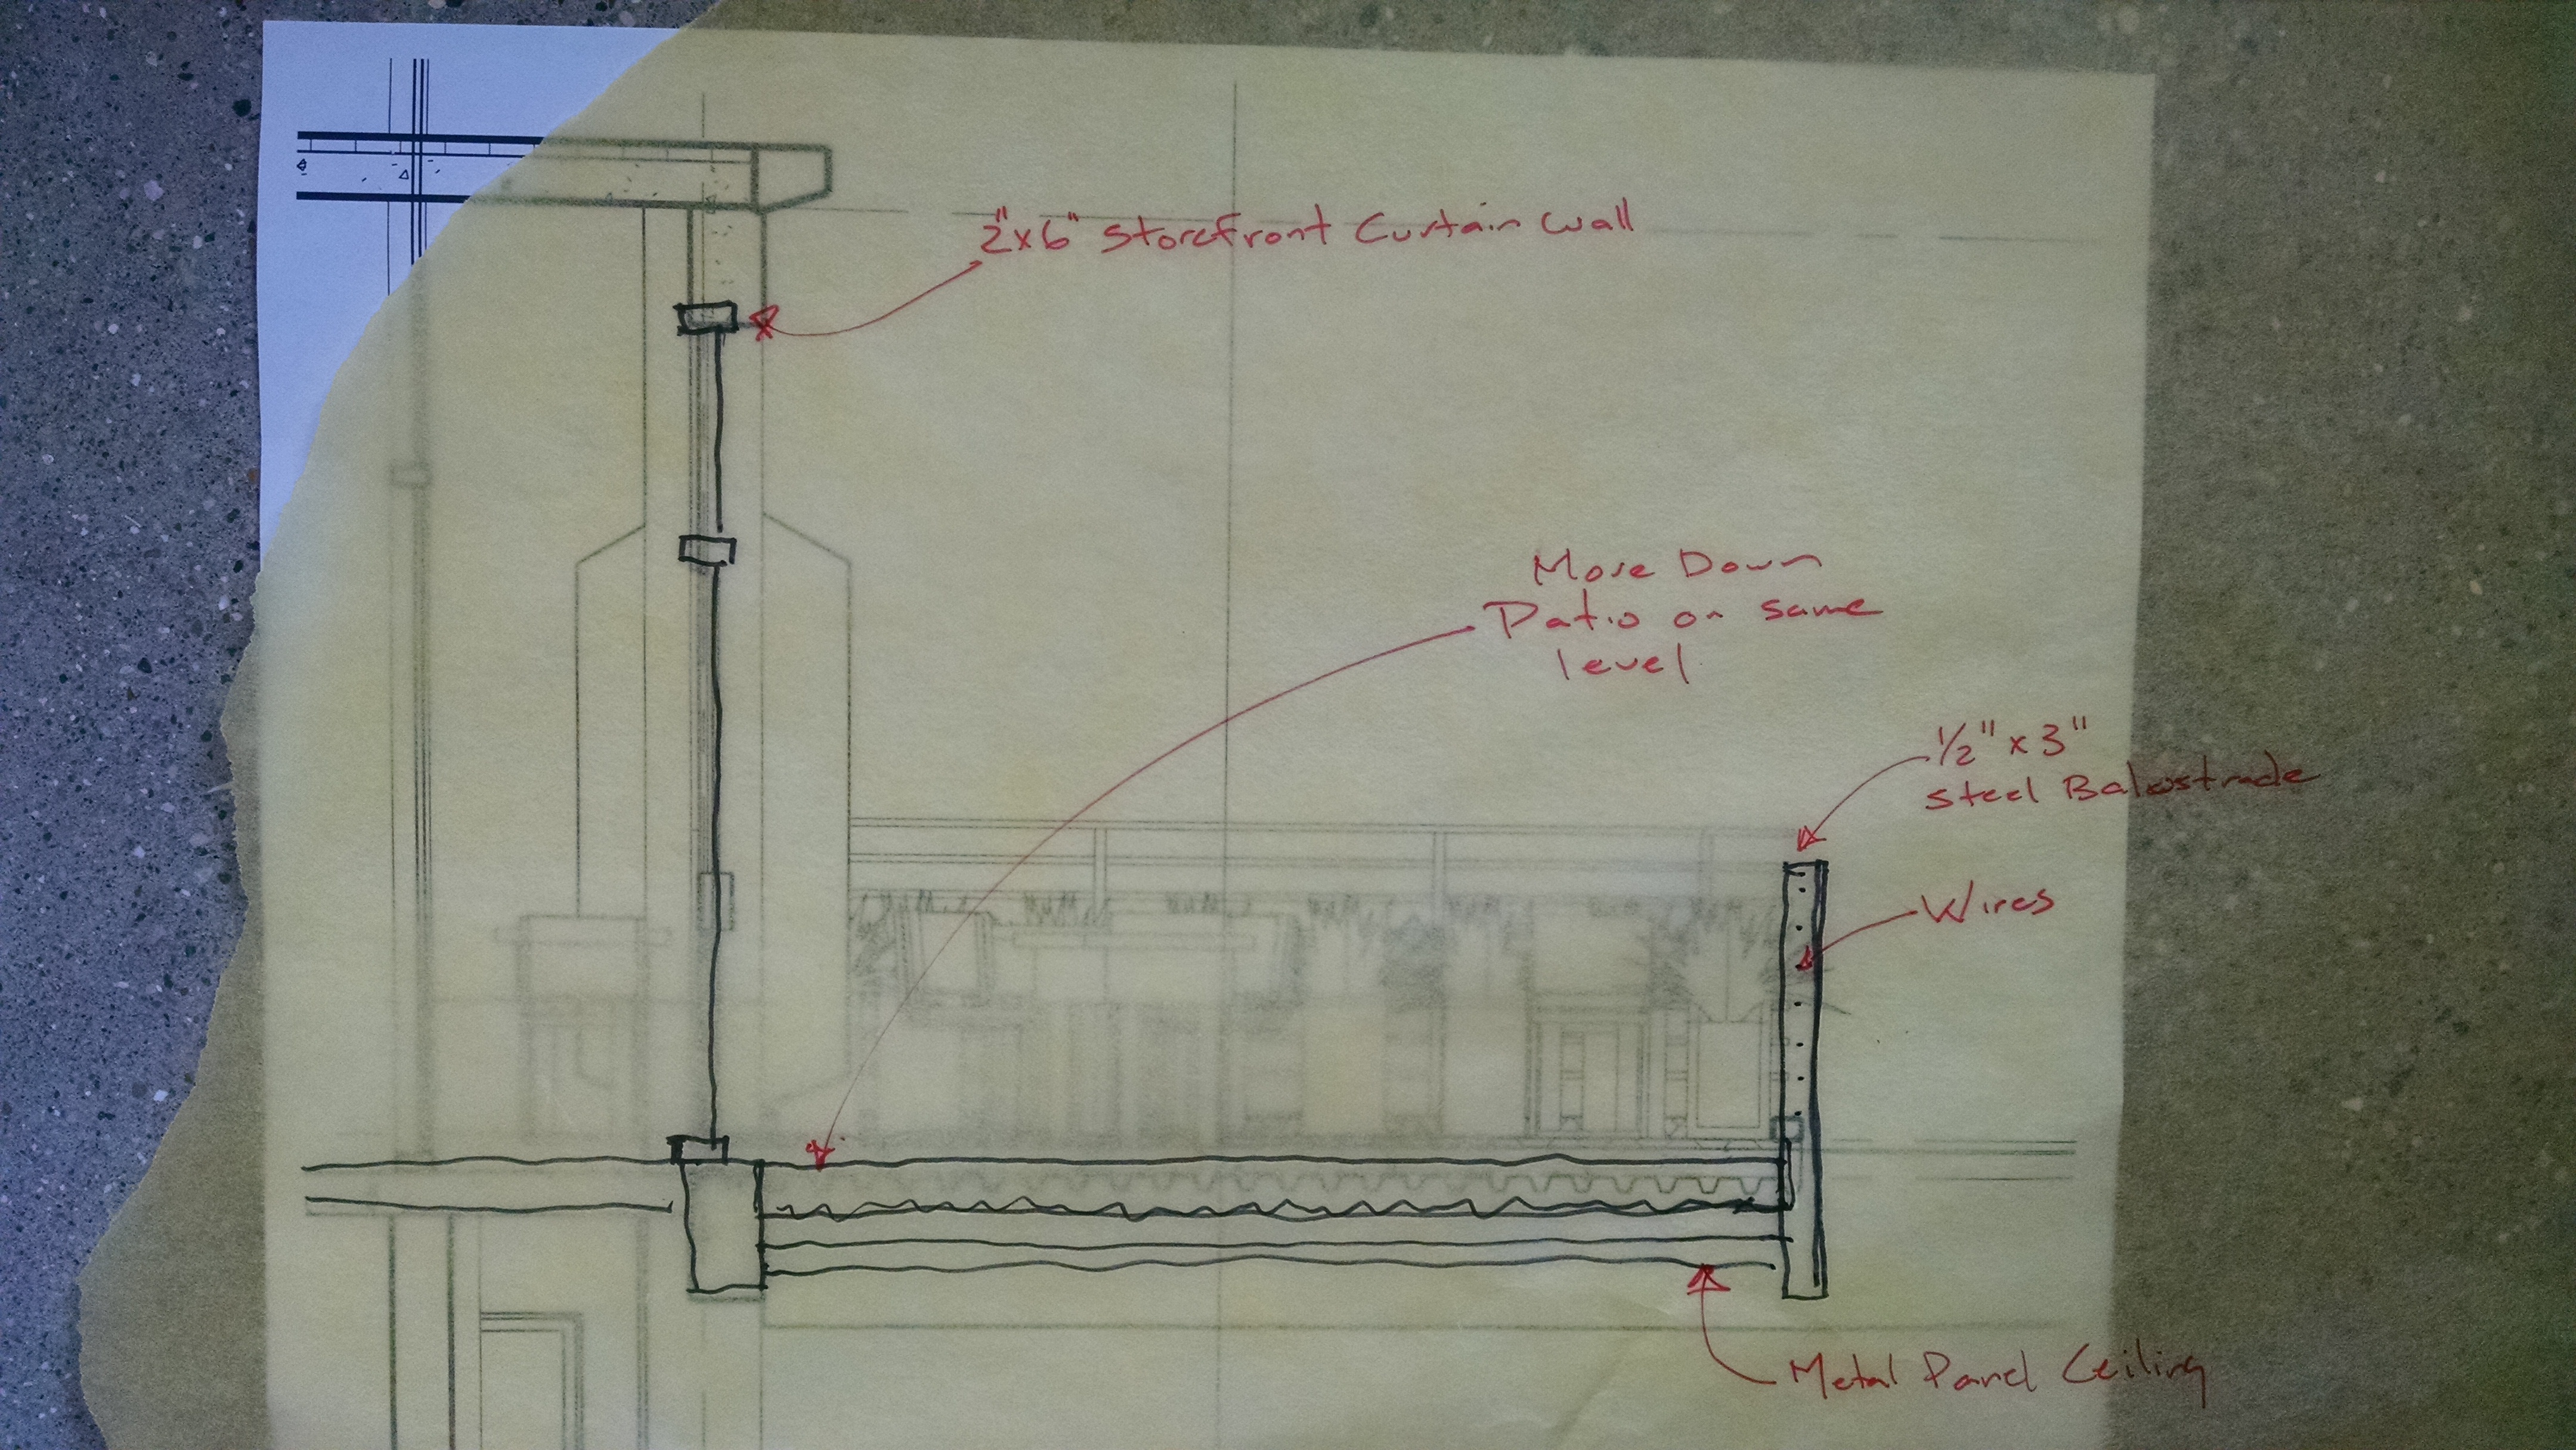 2"x6" Storefront Curtain Wall
Move Down
Patio on same
level
1/2" x 3"
Steel Balustrade
Wires
Metal Panel Ceiling